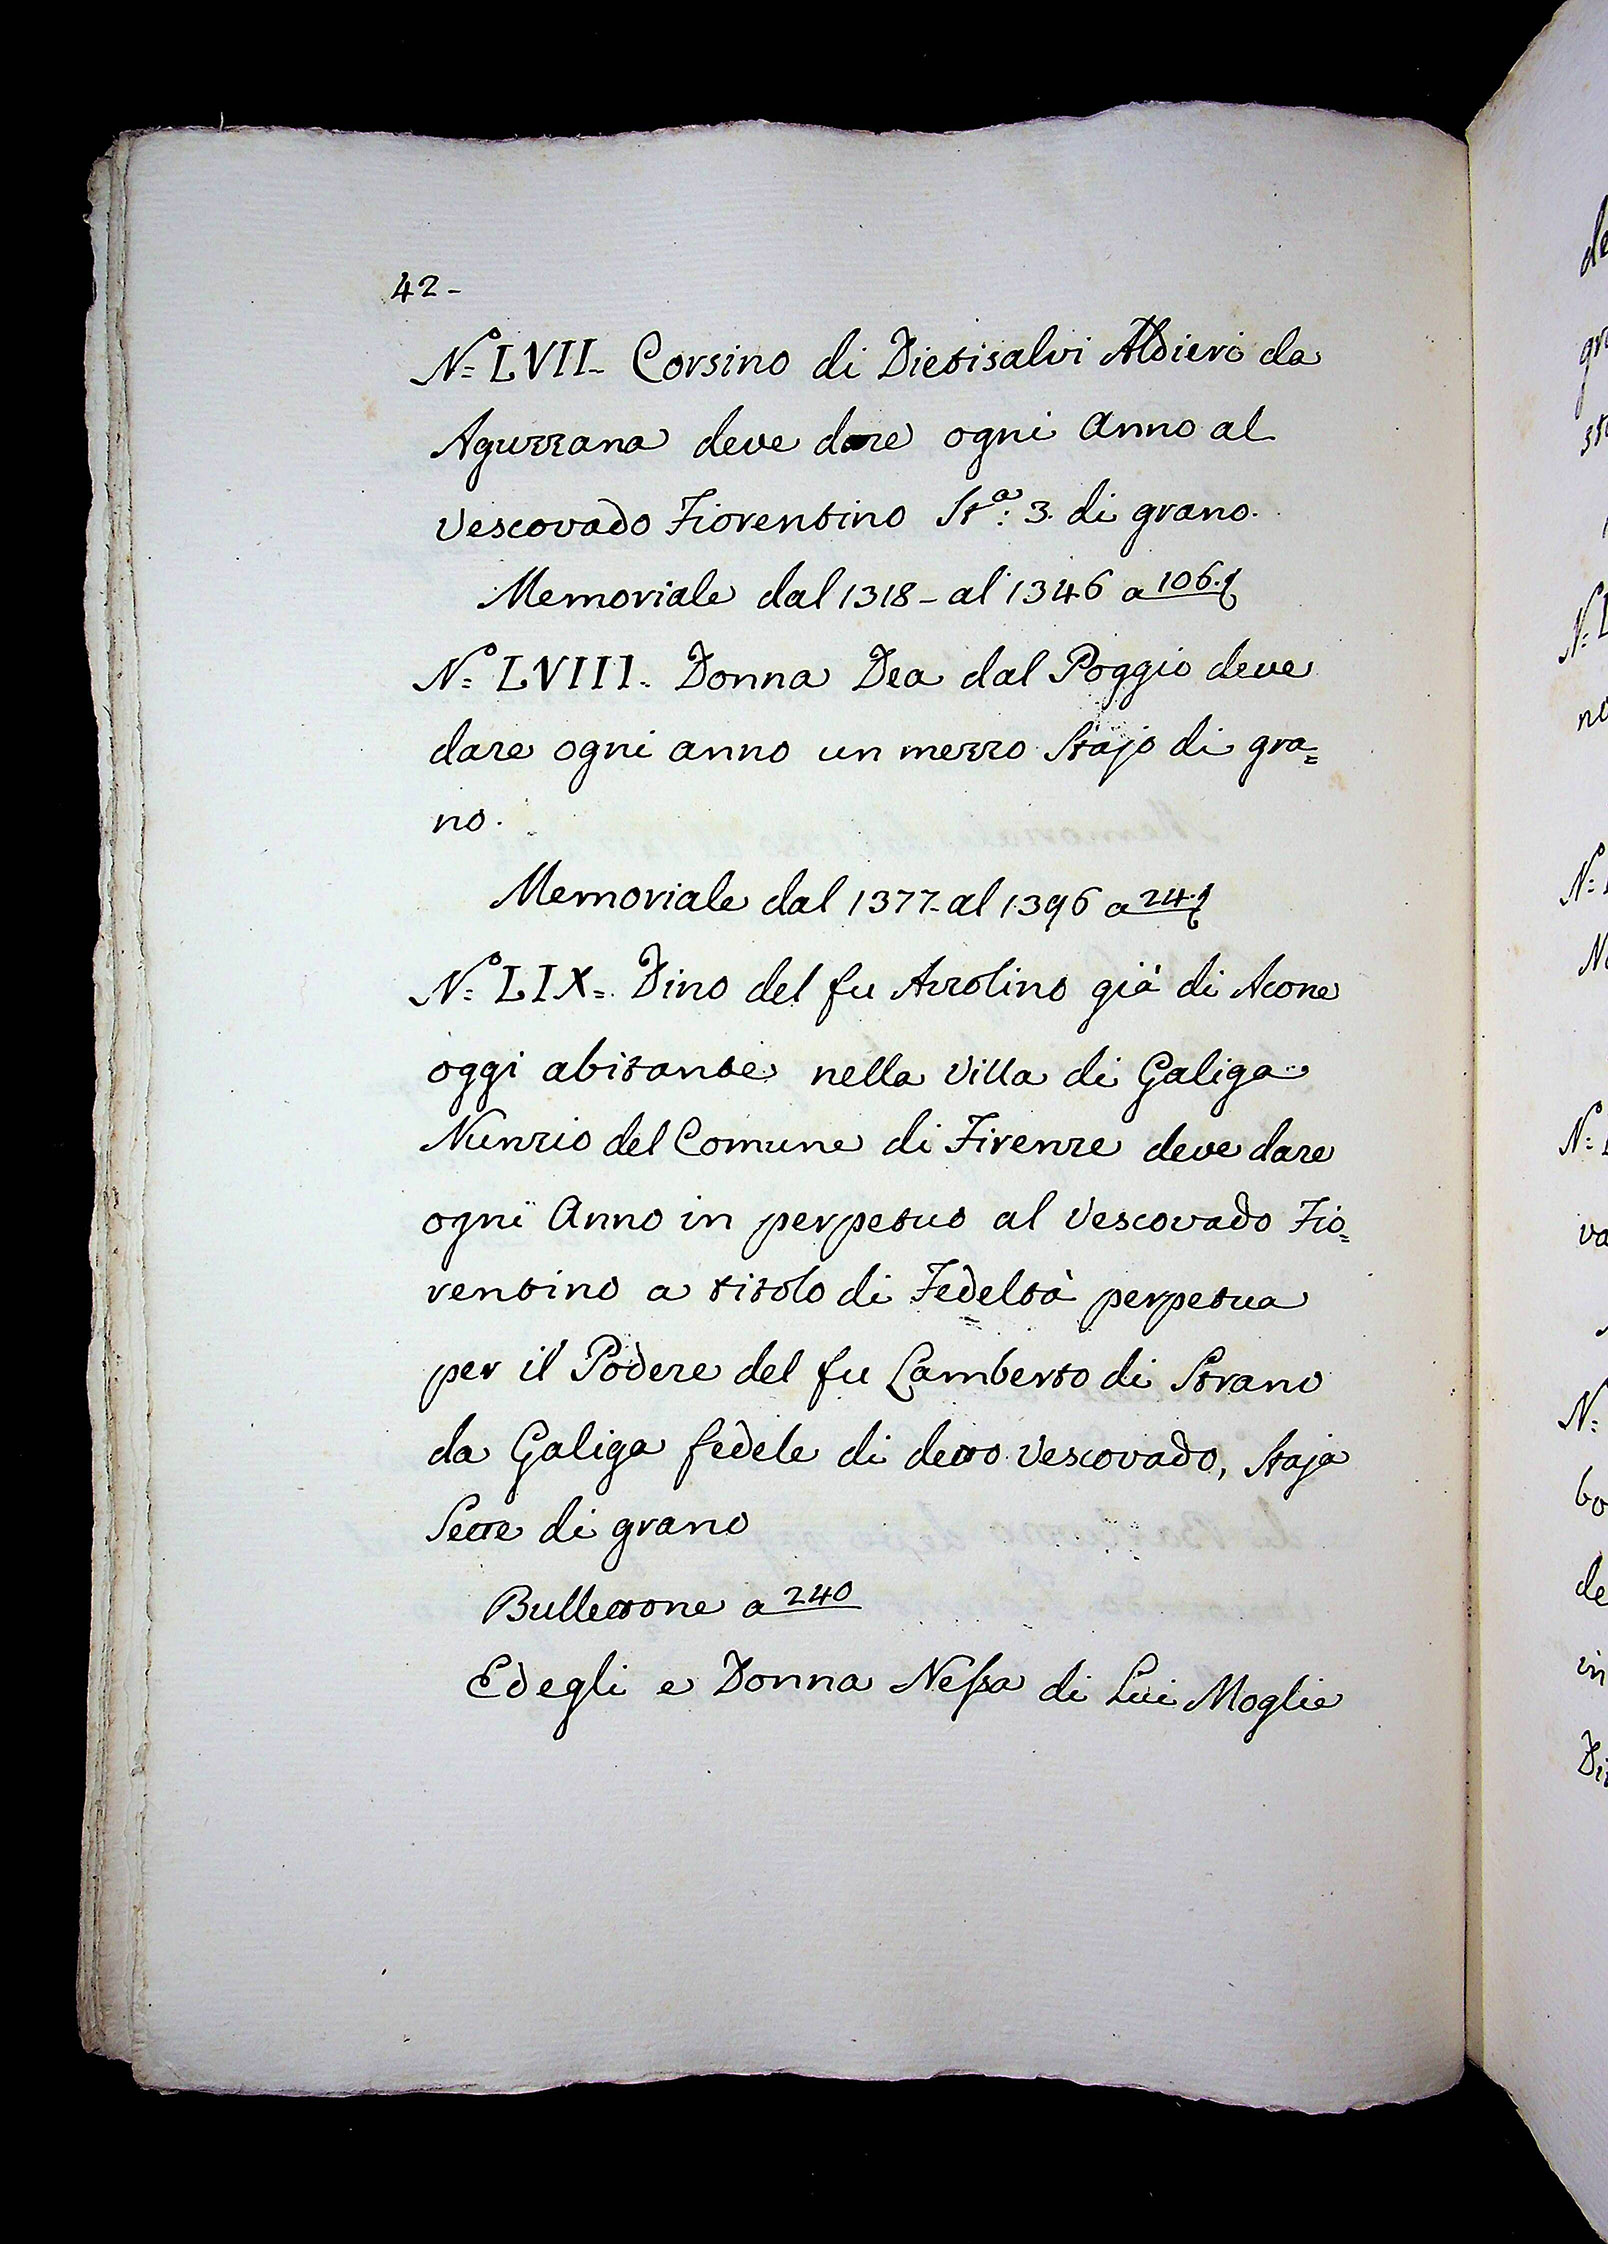 42-
N.º LVII- Corsino di Dietisalvi Aldieri da
Aguzzana deve dare ogni Anno al
Vescovado Fiorentino St.ª: 3. di grano.
Memoriale dal 1318- al 1346 a 106.
Nº LVIII. Donna Dea dal Poggio deve
dare ogni anno un mezzo Stajo di gra=
no.
Memoriale dal 1377- al 1396 a 24.
Nº LIX=. Dino del fu Azzolino già di Acone
oggi abitante nella Villa di Galiga
Nunzio del Comune di Firenze deve dare
ogni Anno in perpetuo al Vescovado Fio=
rentino a titolo di Fedeltà perpetua
per il Podere del fu Lamberto di Strano
da Galiga fedele di detto Vescovado, Staja
Sette di grano
Bullettone a 240
Ed egli e Donna Nessa di Lui Moglie